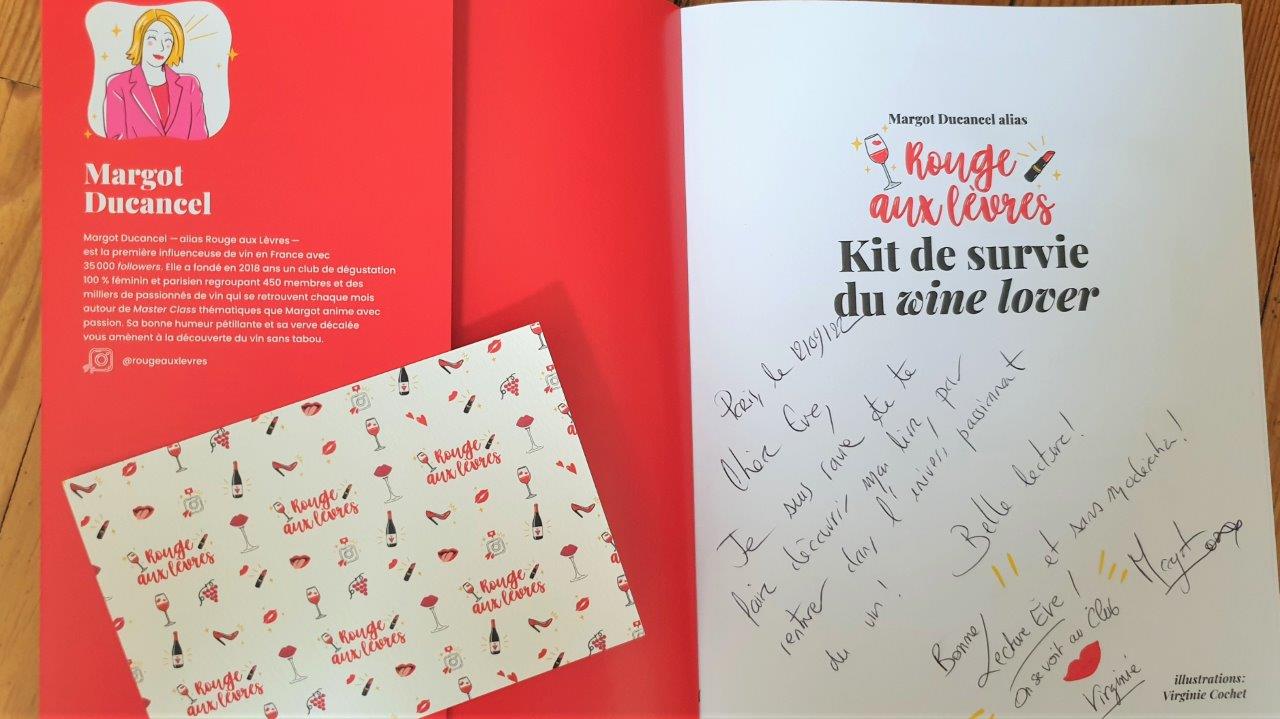 Margot
Ducancel
Margot Ducancel —alias Rouge aux Lèvres—
est la première influenceuse de vin en France avec
35 000 followers. Elle a fondé en 2018 ans un club de dégustation
100 % féminin et parisien regroupant 450 membres et des
milliers de passionnés de vin qui se retrouvent chaque mois
autour de Master Class thématiques que Margot anime avec
passion. Sa bonne humeur pétillante et sa verve décalée
vous amènent à la découverte du vin sans tabou.
@rougeauxlevres
Rouge
aux lèvres
Rouge
aux lèvres
Rouge
aux lèvres
Rouge
aux lèvres
Rouge
aux lèvres
Rouge
aux lèvres
Margot Ducancel alias
Rouge
aux lèvres
Kit de survie
du wine lover
Paris, le 12/04/22
Chère Eve,
Je suis ravie de te
faire découvrir mon livre, pour
rentrer dans l'univers passionnant
du vin !
Belle lecture !
et sans modération !
Margot
Bonne
Lecture Ève !
On se voit au Club
Virginie
illustrations:
Virginie Cochet